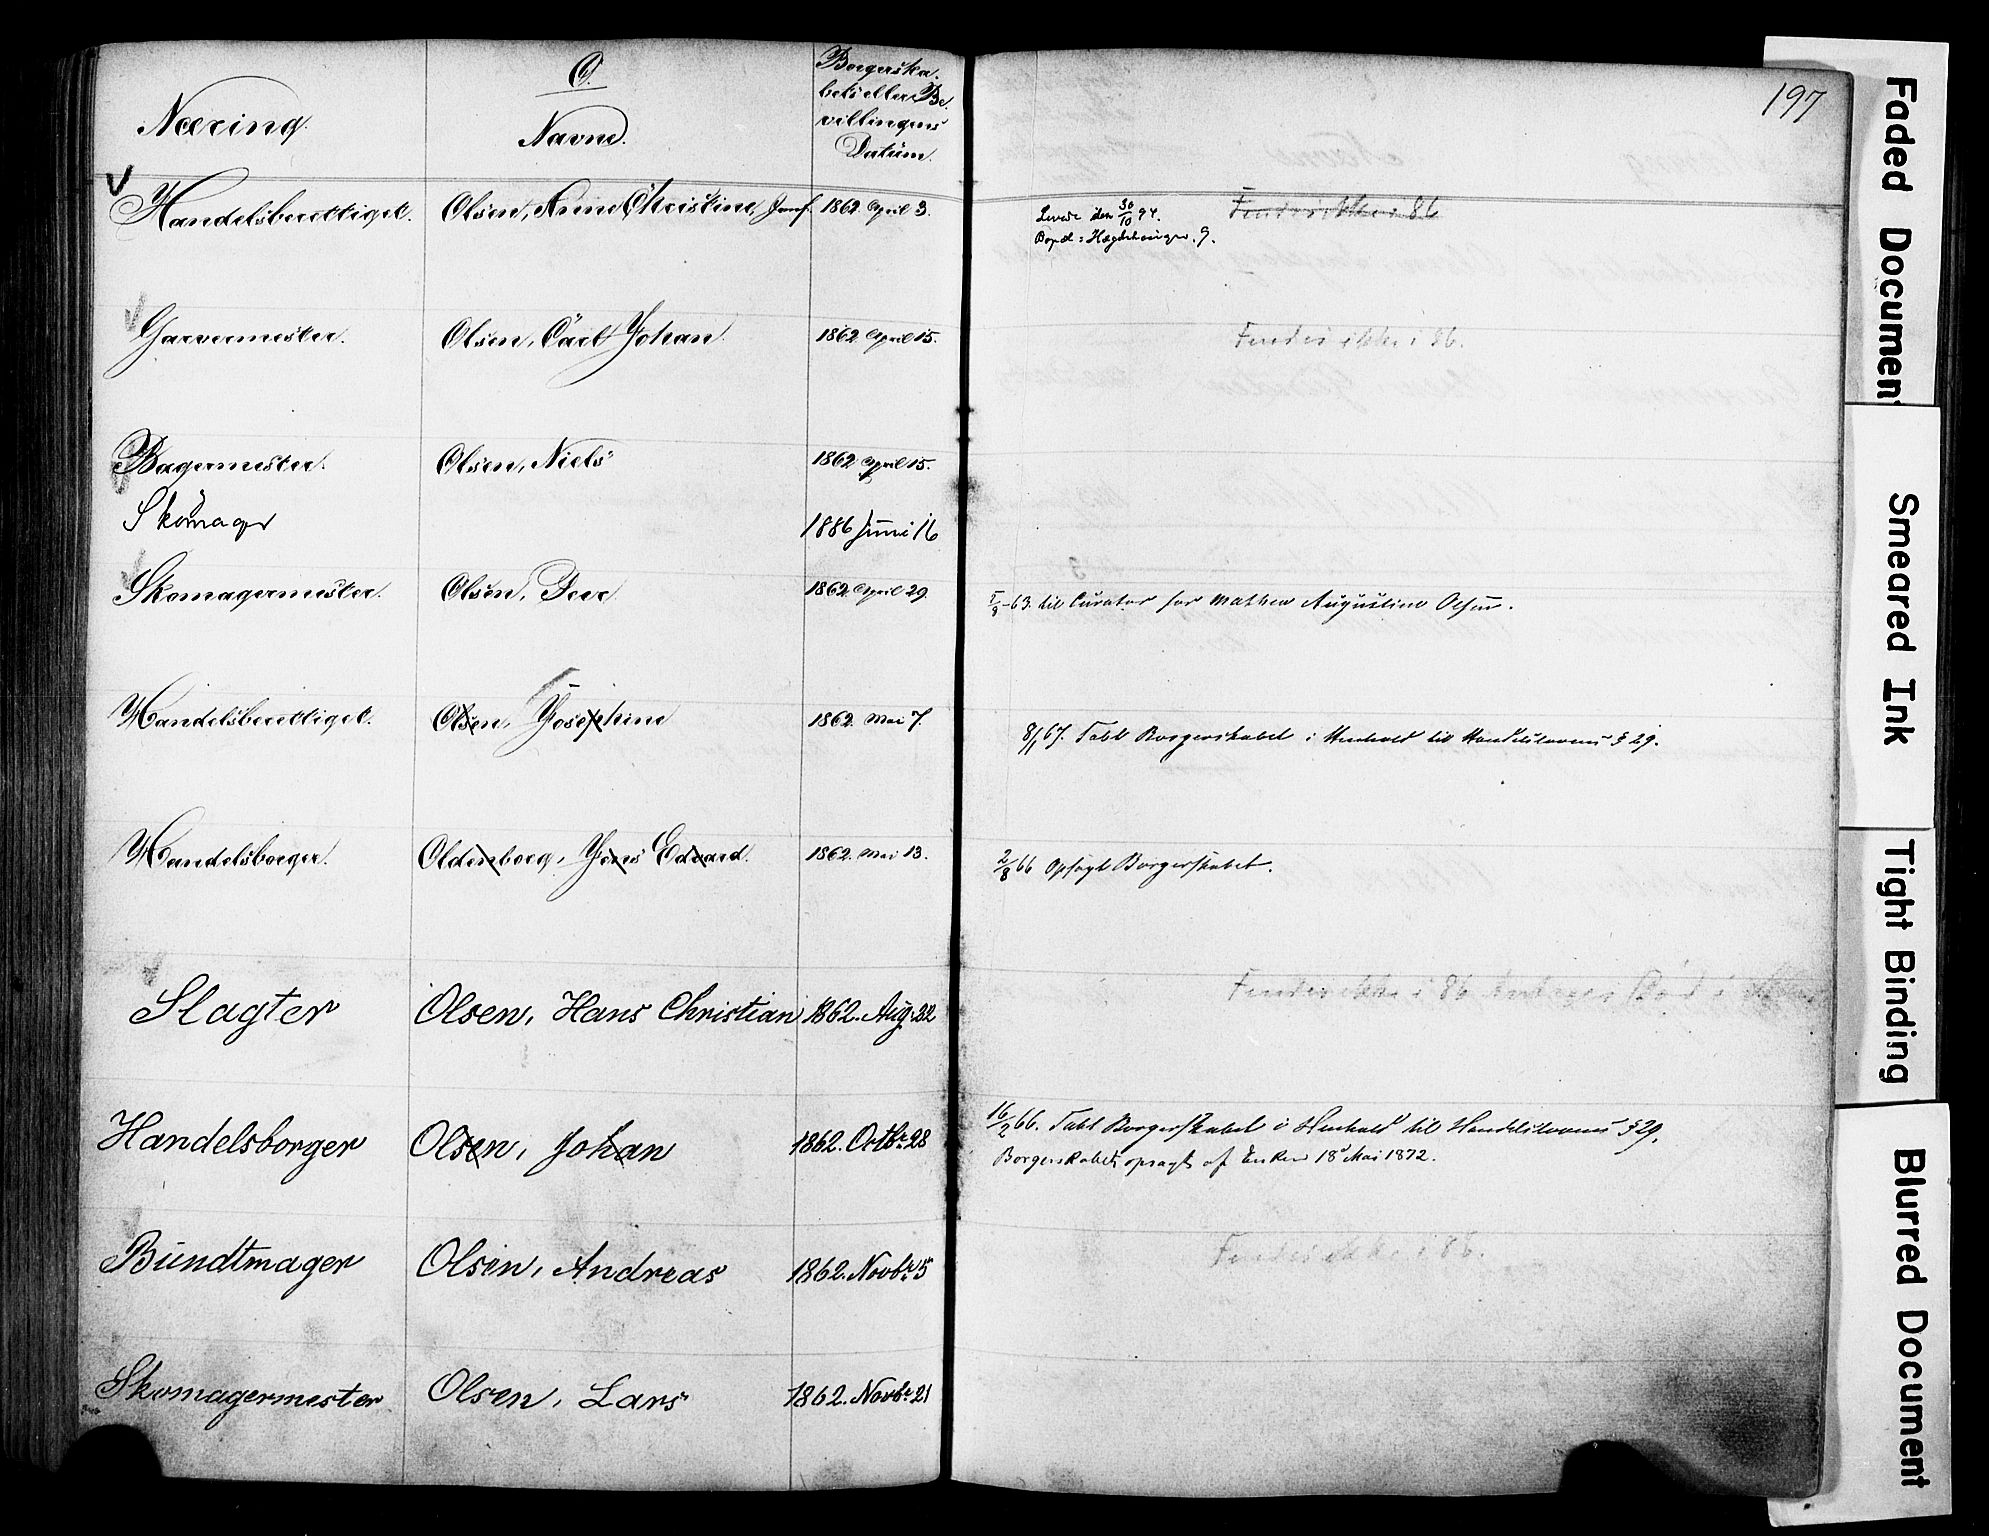 O.
Næring.
Navne.
Borgerska-
bets eller Be-
villingens
Datum.
197
Handelsberettiget. Olsen, Anne Christine, Jomf. 1862 April 3.
Levede den 30/10 94. Findes ikke i 86
Bopæl: 9.
Garvermester. Olsen, Carl Johan. 1862 April 15. Findes ikke i 86.
Bagermester. Olsen, Niels 1862 April 15.
Skomager 1886 Juni 16
Skomagermester. Olsen, Peer 1862 April 29.
-63. til Curator for Mathea Augustine Olsen.
Handelsberettiget. Olsen, Josephine 1862 Mai 7.
8/1 67. Tabt Borgerskabet i Henhold til Handelslovens § 29.
Handelsborger. Oldenborg, Jens Edvard. 1862 Mai 13.
2/8 66 Opsagt Borgerskabet.
Slagter Olsen, Hans Christian 1862. Aug. 22 Findes ikke i 86 Andreas Død i
Handelsborger Olsen, Johan 1862. Octbr. 28
16/2 66. Tabt Borgerskabet i Henhold til Handelslovens § 29.
Borgerskabet opsagt af Enken 18de Mai 1872.
Bundtmager Olsen, Andreas 1862. Novbr. 5 Findes ikke i 86.
Skomagermester Olsen, Lars 1862. Novbr. 21
Faded Document
Smeared Ink
Tight Binding
Blurred Document